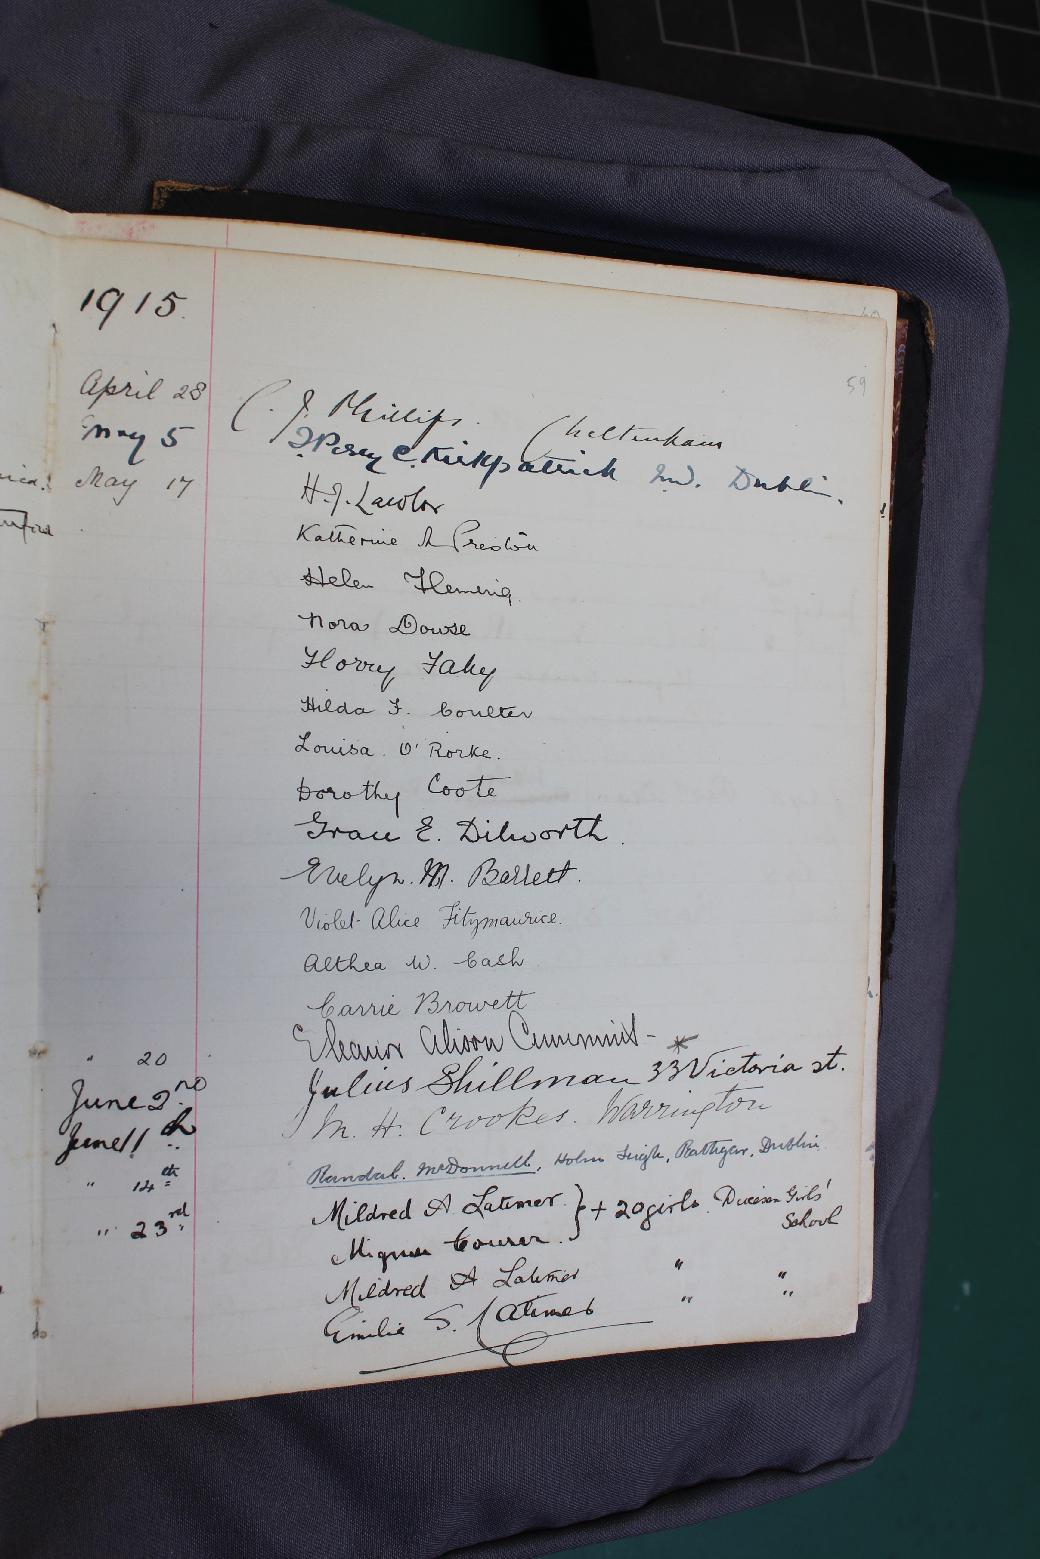 59
1915.
April 28 C. J. Phillips. Cheltenham
May 5 T. Percy C. Kirkpatrick M.D. Dublin.
May 17 H. J. Lawlor
Katherine A Preston
Helen Fleming.
Nora Dowse
Florry Fahy
Hilda F. Coulter
Louisa O'Rorke.
Dorothy Coote
Grace E. Dilworth.
Evelyn. M. Barrett.
Violet Alice Fitzmaurice.
Althea W. Cash
Carrie Browett
Eleanor Alison
" 20 Julius Shillman 33 Victoria st.
June 2nd M. H. Crookes. Warrington
June 11th
" 14th Randal. McDonnell, Holm Leigh, Rathgar, Dublin.
" 23rd Mildred A Latimer } + 20 girls. Diocesan Girls' School
Mildred A Latimer " "
Emilie S. Latimer " "